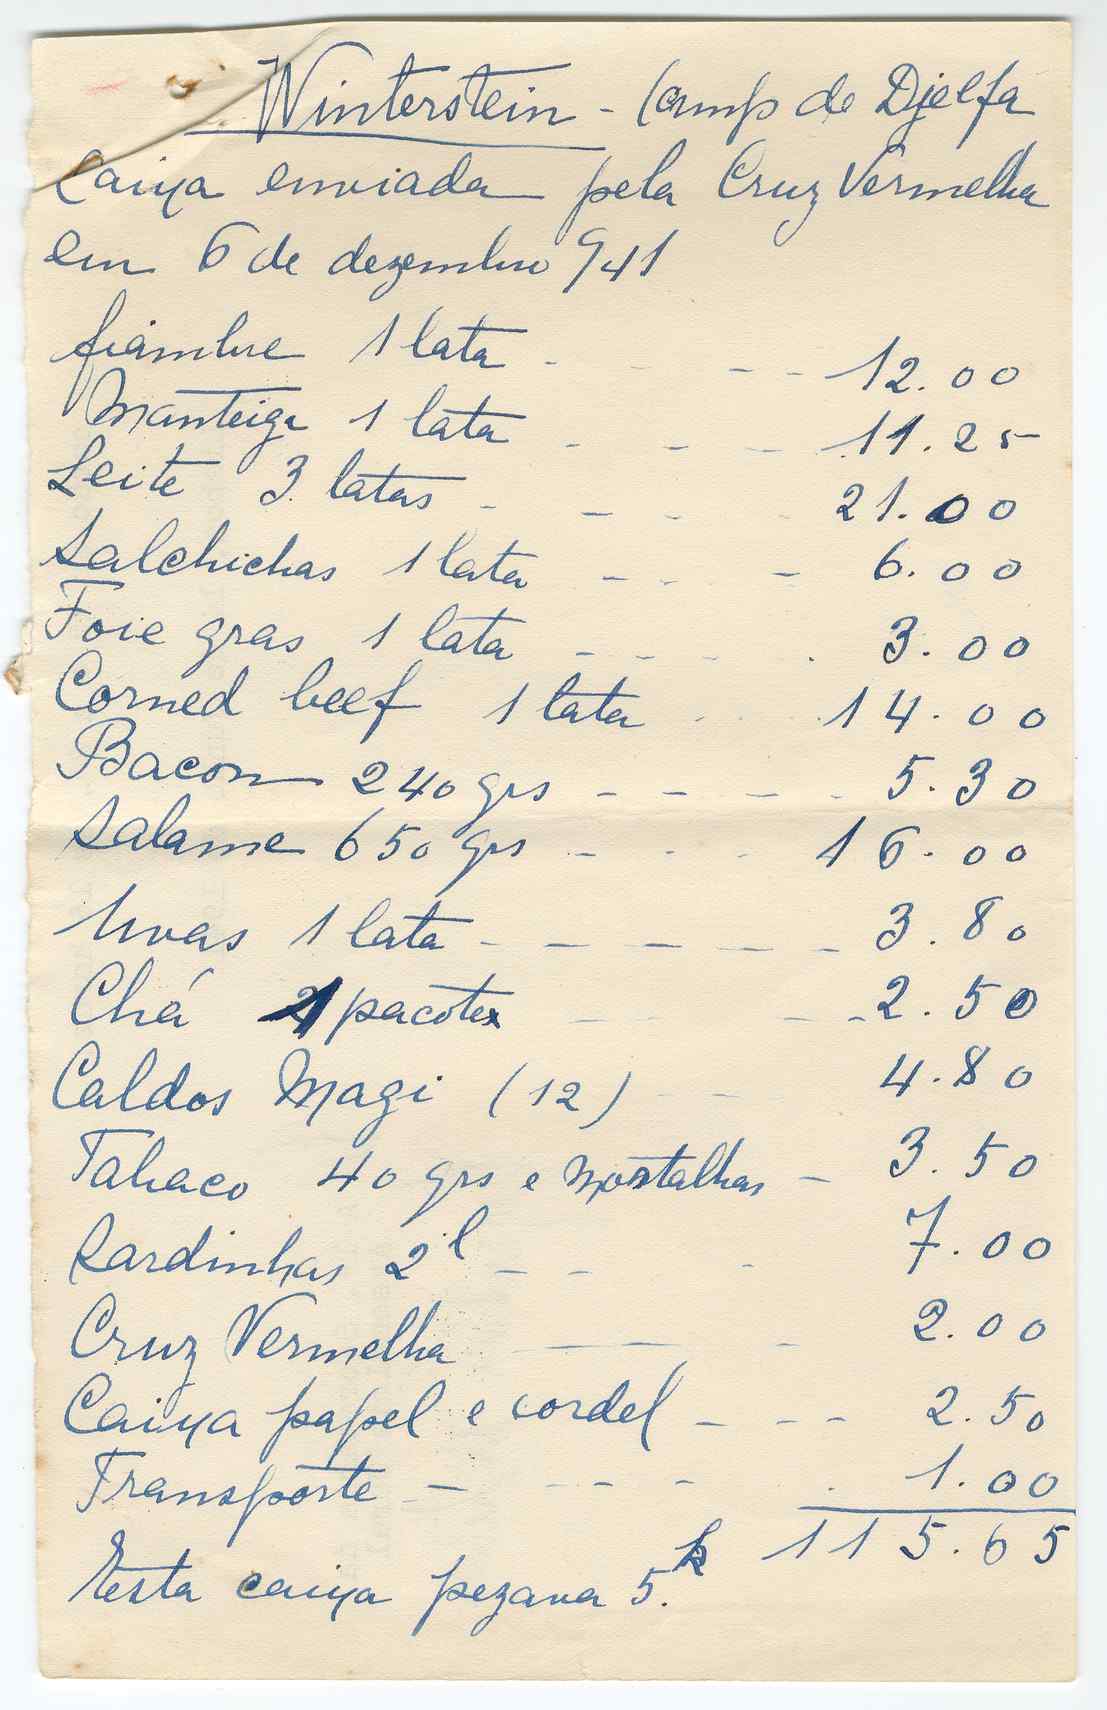 Winterstein - Camp de Djelfa
Caixa enviada pela Cruz Vermelha
em 6 de dezembro 941
fiambre 1 lata - - - 12.00
Manteiga 1 lata - - - 11.25
Leite 3 latas - - - 21.00
Salchichas 1 lata - - - 6.00
Foie gras 1 lata - - - 3.00
Corned beef 1 lata - - - 14.00
Bacon 240 grs - - - - 5.30
Salame 650 grs - - - 16.00
Uvas 1 lata - - - - - 3.80
Chá 1 pacotes - - - 2.50
Caldos Magi (12) - - 4.80
Tabaco 40 grs e mortalhas - 3.50
Sardinhas 2 l - - - 7.00
Cruz Vermelha - - - 2.00
Caixa papel e cordel - - - 2.50
Transporte - - - - 1.00
115.65
Esta caixa pezava 5.k